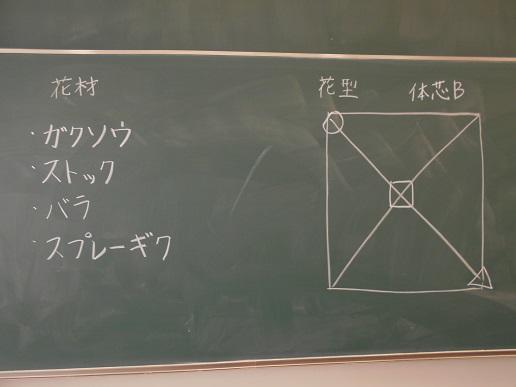 花材
・ガクソウ
・ストック
・バラ
・スプレーギク
花型 体芯B